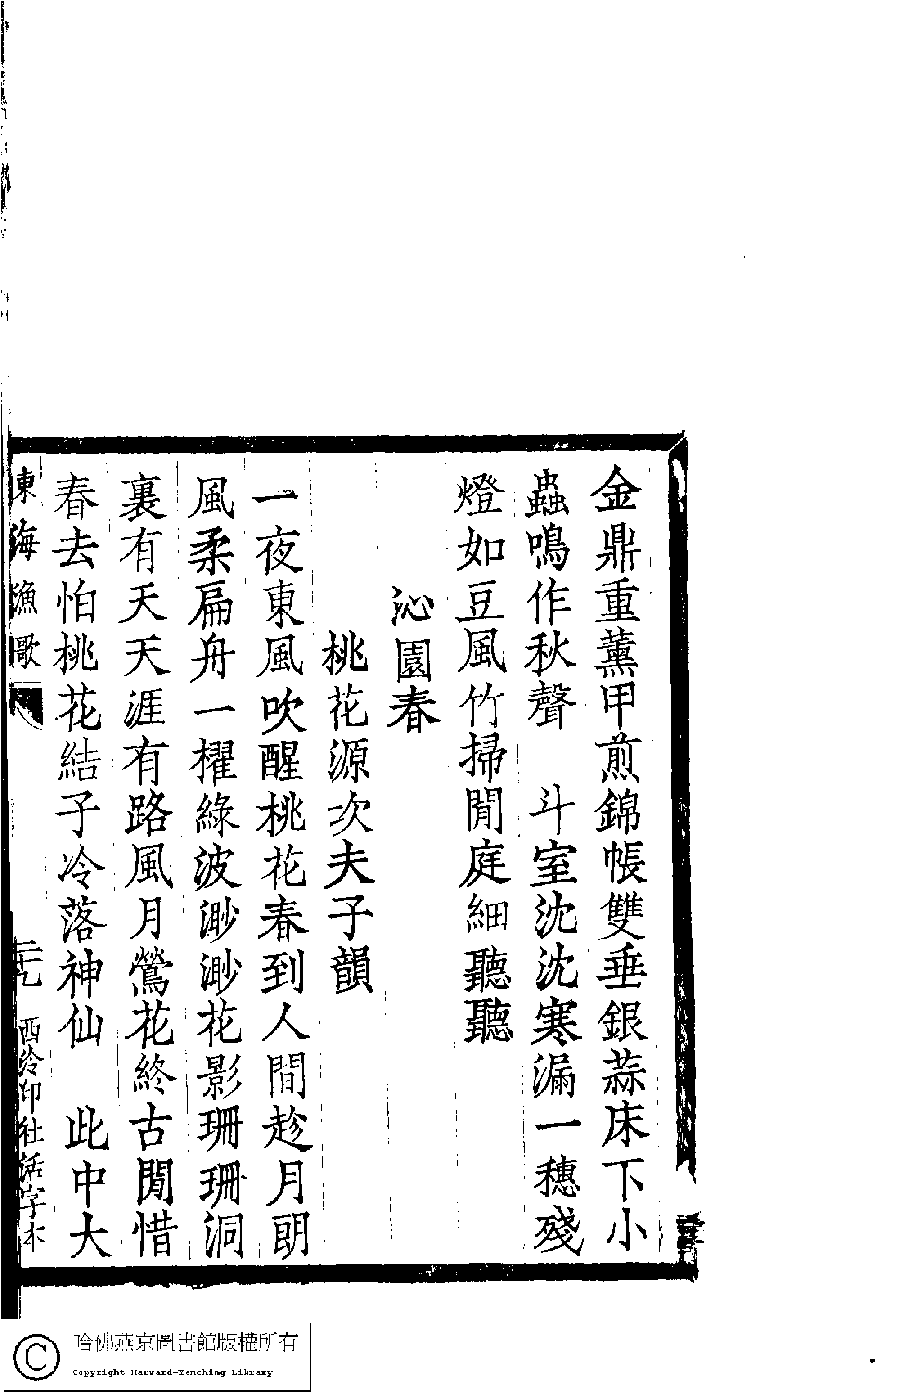 金鼎重薰甲煎錦帳雙垂銀蒜床下小
蟲鳴作秋聲　斗室沈沈寒漏一穗殘
燈如豆風竹掃閒庭細聽聽
沁園春
桃花源次夫子韻
一夜東風吹醒桃花春到人間趁月朗
風柔扁舟一櫂綠波渺渺花影珊珊洞
裏有天天涯有路風月鶯花終古閒惜
春去怕桃花結子冷落神仙　此中大
東海漁歌
二九
西泠印社活字本
哈佛燕京圖書館版權所有
Copyright Harvard-Yenching Library